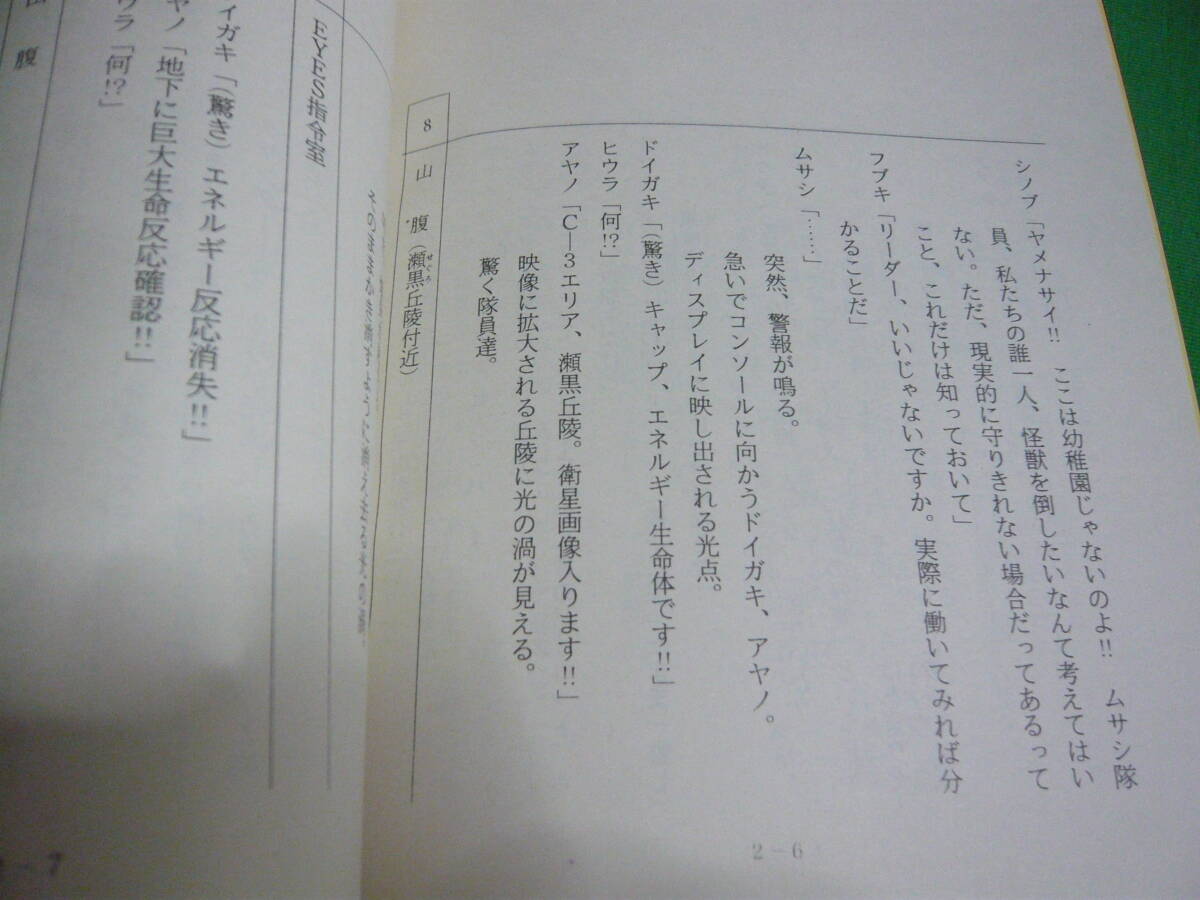 シノブ「ヤメナサイ!! ここは幼稚園じゃないのよ!! ムサシ隊
員、私たちの誰一人、怪獣を倒したいなんて考えてはい
ない。ただ、現実的に守りきれない場合だってあるって
こと、これだけは知っておいて」
フブキ「リーダー、いいじゃないですか。実際に働いてみれば分
かることだ」
ムサシ「……」
突然、警報が鳴る。
急いでコンソールに向かうドイガキ、アヤノ。
ディスプレイに映し出される光点。
ドイガキ「(驚き)キャップ、エネルギー生命体です!!」
ヒウラ「何!?」
アヤノ「C-3エリア、瀬黒丘陵。衛星画像入ります!!」
映像に拡大される丘陵に光の渦が見える。
驚く隊員達。
8 山 腹(瀬黒丘陵付近)
せぐろ
2-6
EYES指令室
イガキ「(驚き)エネルギー反応消失!!」
ヤノ「地下に巨大生命反応確認!!」
ウラ「何!?」
山 腹
-7